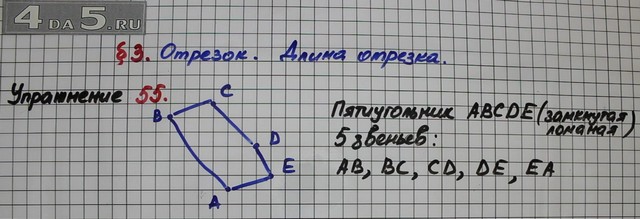 4 DA 5.RU
§3. Отрезок. Длина отрезка.
Упражнение 55.
C
B
D
E
A
Пятиугольник ABCDE (замкнутая
ломаная)
5 звеньев:
AB, BC, CD, DE, EA